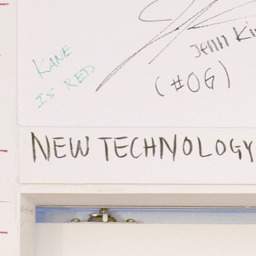 KANE
IS RED
Jenn
(#06)
NEW TECHNOLOGY